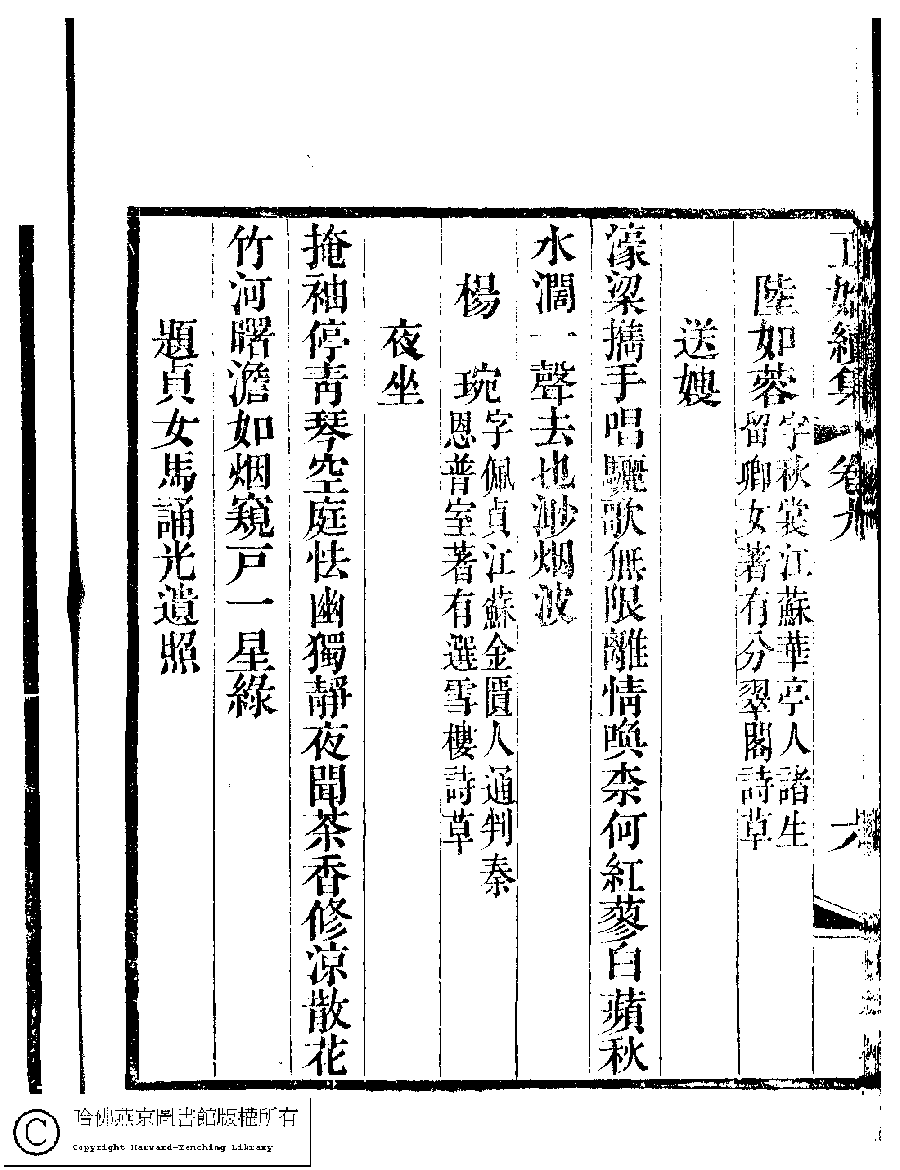 正始續集 卷九 六
陸如蓉 字秋裳江蘇華亭人諸生
留卿女著有分翠閣詩草
送嫂
濠梁擕手唱驪歌無限離情喚柰何紅蓼白蘋秋
水濶一聲去也渺烟波
楊 琬 字佩貞江蘇金匱人通判秦
恩普室著有選雪樓詩草
夜坐
掩袖停青琴空庭怯幽獨靜夜聞茶香修凉散花
竹河曙澹如烟窺戸一星綠
題貞女馬誦光遺照
哈佛燕京圖書館版權所有
Copyright Harvard-Yenching Library